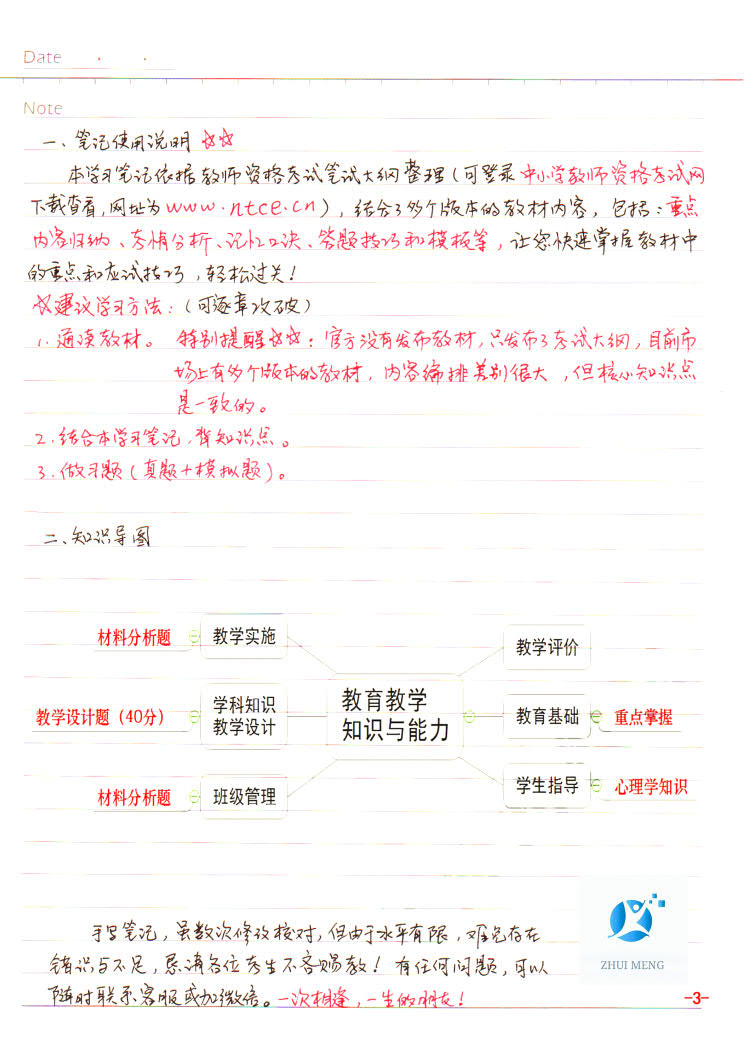 Date
Note
一、笔记使用说明 ☆☆
本学习笔记依据教师资格考试笔试大纲整理(可登录中小学教师资格考试网
下载查看,网址为www.ntce.cn),结合了多个版本的教材内容,包括:重点
内容归纳、考情分析、记忆口诀、答题技巧和模板等,让您快速掌握教材中
的重点和应试技巧,轻松过关!
☆建议学习方法:(可逐章攻破)
1.通读教材。 特别提醒☆☆:官方没有发布教材,只发布了考试大纲,目前市
场上有多个版本的教材,内容编排差别很大,但核心知识点
是一致的。
2.结合本学习笔记,背知识点。
3.做习题(真题+模拟题)。
二、知识导图
材料分析题 教学实施
教学评价
教学设计题(40分) 学科知识
教学设计
教育教学
知识与能力
教育基础 重点掌握
材料分析题 班级管理
学生指导 心理学知识
手写笔记,虽数次修改核对,但由于水平有限,难免存在
错识与不足,恳请各位考生不吝赐教!有任何问题,可以
随时联系客服或加微信。一次相逢,一生的朋友!
ZHUI MENG
-3-